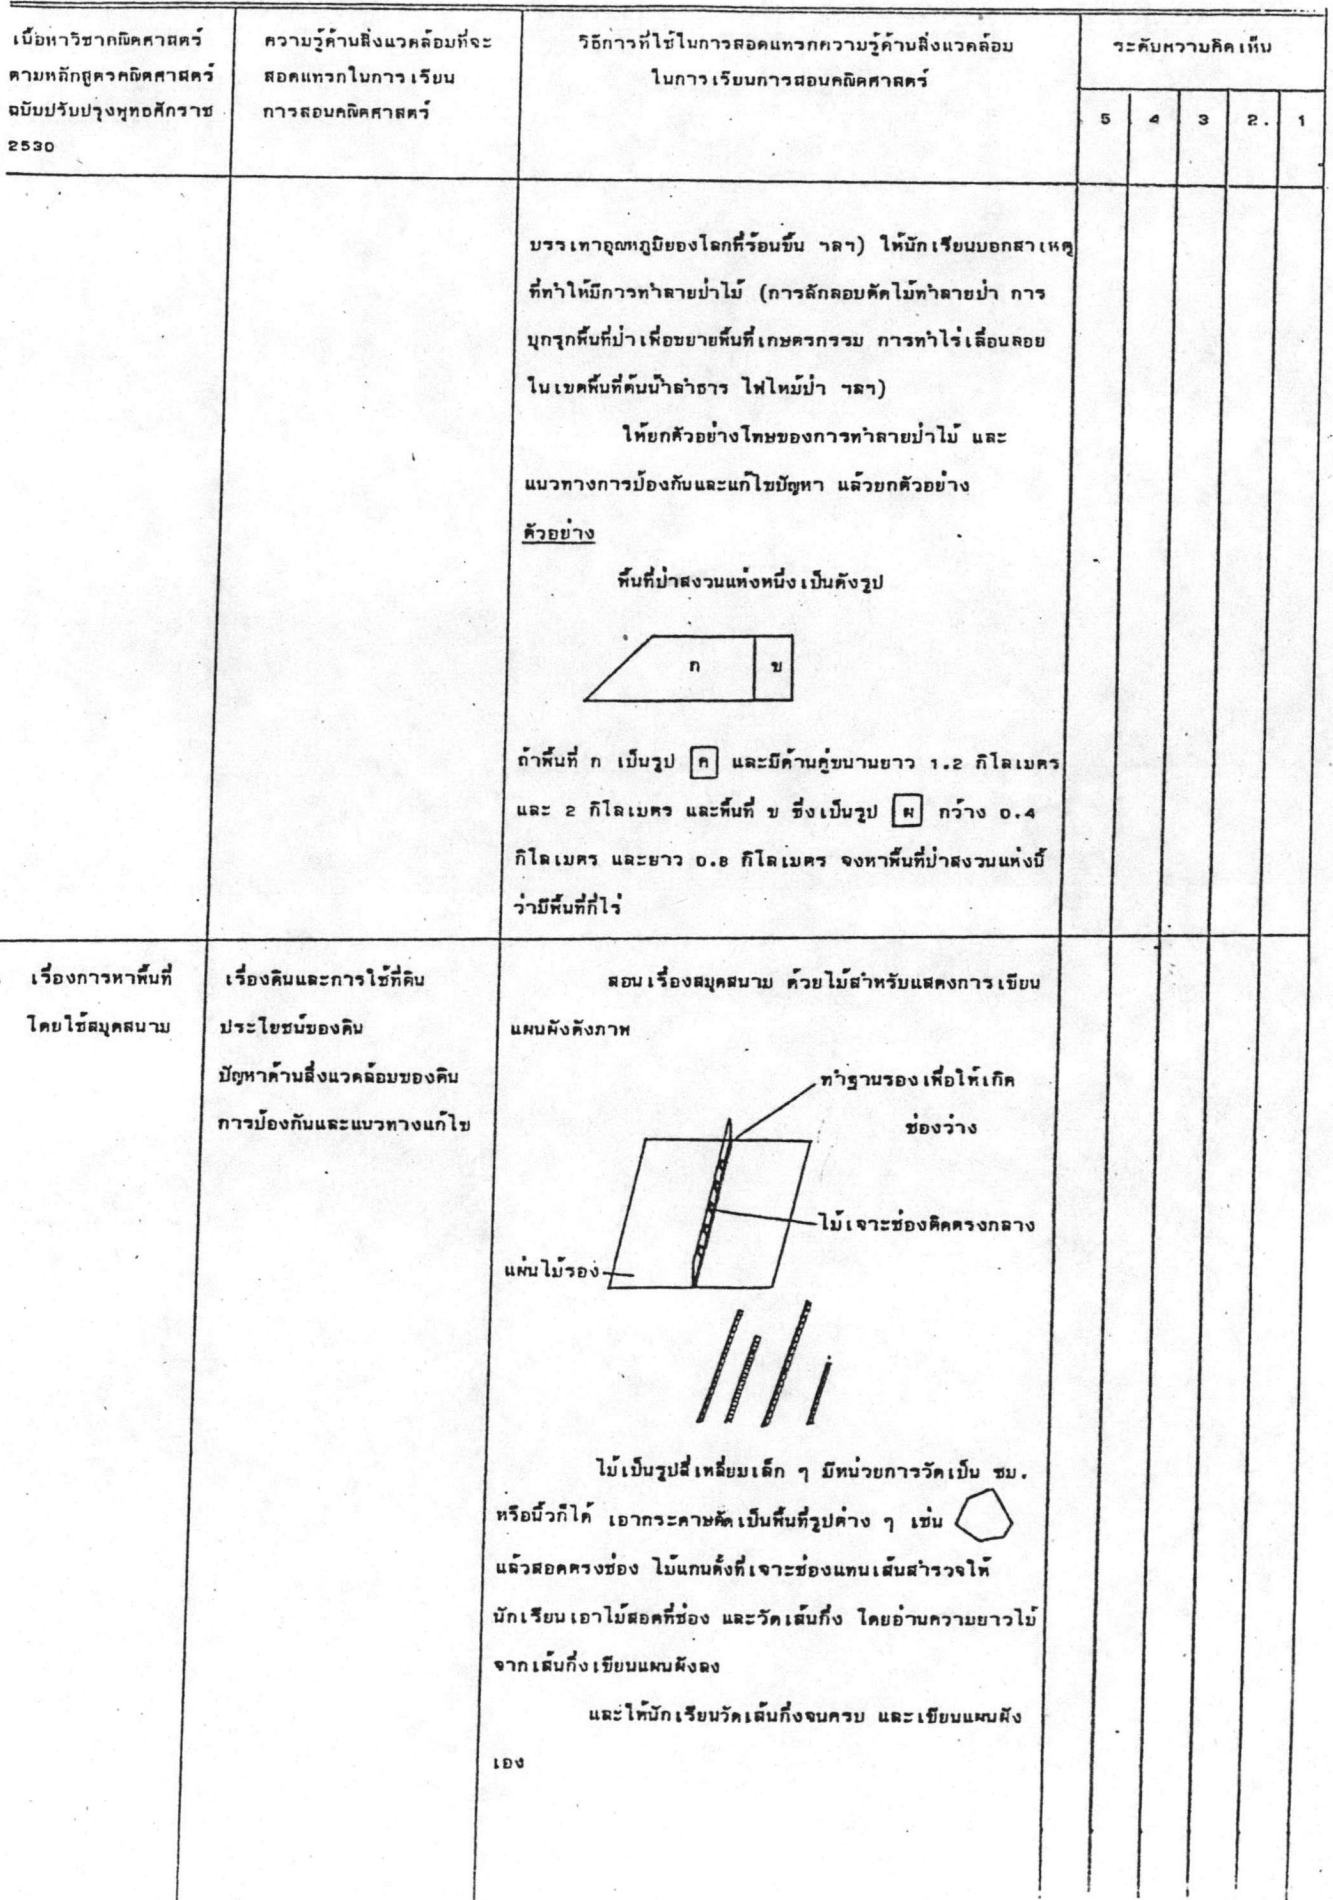 เนื้อหาวิชาคณิตศาสตร์
ตามหลักสูตรคณิตศาสตร์
ฉบับปรับปรุงพุทธศักราช
2530
ความรู้ด้านสิ่งแวดล้อมที่จะ
สอดแทรกในการเรียน
การสอนคณิตศาสตร์
วิธีการที่ใช้ในการสอดแทรกความรู้ด้านสิ่งแวดล้อม
ในการเรียนการสอนคณิตศาสตร์
ระดับความคิดเห็น
5 4 3 2. 1
บรรเทาอุณหภูมิของโลกที่ร้อนขึ้น ฯลฯ) ให้นักเรียนบอกสาเหตุ
ที่ทำให้มีการทำลายป่าไม้ (การลักลอบตัดไม้ทำลายป่า การ
บุกรุกพื้นที่ป่าเพื่อขยายพื้นที่เกษตรกรรม การทำไร่เลื่อนลอย
ในเขตพื้นที่ต้นน้ำลำธาร ไฟไหม้ป่า ฯลฯ)
ให้ยกตัวอย่างโทษของการทำลายป่าไม้ และ
แนวทางการป้องกันและแก้ไขปัญหา แล้วยกตัวอย่าง
ตัวอย่าง
พื้นที่ป่าสงวนแห่งหนึ่งเป็นดังรูป
ก ข
ถ้าพื้นที่ ก เป็นรูป ค และมีด้านคู่ขนานยาว 1.2 กิโลเมตร
และ 2 กิโลเมตร และพื้นที่ ข ซึ่งเป็นรูป ผ กว้าง 0.4
กิโลเมตร และยาว 0.8 กิโลเมตร จงหาพื้นที่ป่าสงวนแห่งนี้
ว่ามีพื้นที่กี่ไร่
เรื่องการหาพื้นที่
โดยใช้สมุดสนาม
เรื่องดินและการใช้ที่ดิน
ประโยชน์ของดิน
ปัญหาด้านสิ่งแวดล้อมของดิน
การป้องกันและแนวทางแก้ไข
สอนเรื่องสมุดสนาม ด้วยไม้สำหรับแสดงการเขียน
แผนผังดังภาพ
ทำฐานรองเพื่อให้เกิด
ช่องว่าง
ไม้เจาะช่องติดตรงกลาง
แผ่นไม้รอง
ไม้เป็นรูปสี่เหลี่ยมเล็ก ๆ มีหน่วยการวัดเป็น ซม.
หรือนิ้วก็ได้ เอากระดาษตัดเป็นพื้นที่รูปต่าง ๆ เช่น
แล้วสอดตรงช่อง ไม้แกนตั้งที่เจาะช่องแทนเส้นสำรวจให้
นักเรียนเอาไม้สอดที่ช่อง และวัดเส้นกิ่ง โดยอ่านความยาวไม้
จากเส้นกิ่งเขียนแผนผังลง
และให้นักเรียนวัดเส้นกิ่งจนครบ และเขียนแผนผัง
เอง